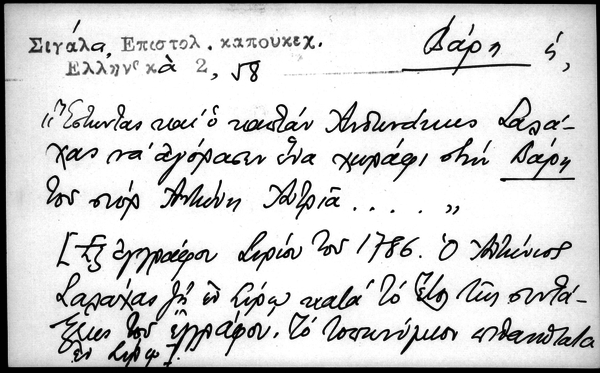 Σιγάλα, Επιστολ. καπουκεχ. Βάρη ἡ,
Ελληνικὰ 2, 58
"Ἔστωντας καὶ ὁ καπτὰν Ἀντωνάκης Σαλά-
χας νὰ ἀγόρασεν ἕνα χωράφι στὴν Βάρη
τοῦ σιὸρ Ἀντώνη Χατριᾶ . . . . "
[Ἐξ ἐγγράφου Σερίφου τοῦ 1786. Ὁ Ἀντώνιος
Σαλάχας ζῇ ἐν Σερίφῳ κατὰ τὸ ἔτος τῆς συντά-
ξεως τοῦ ἐγγράφου. Τὸ τοπωνύμιον πιθανώτατα
ἐν Σερίφῳ].